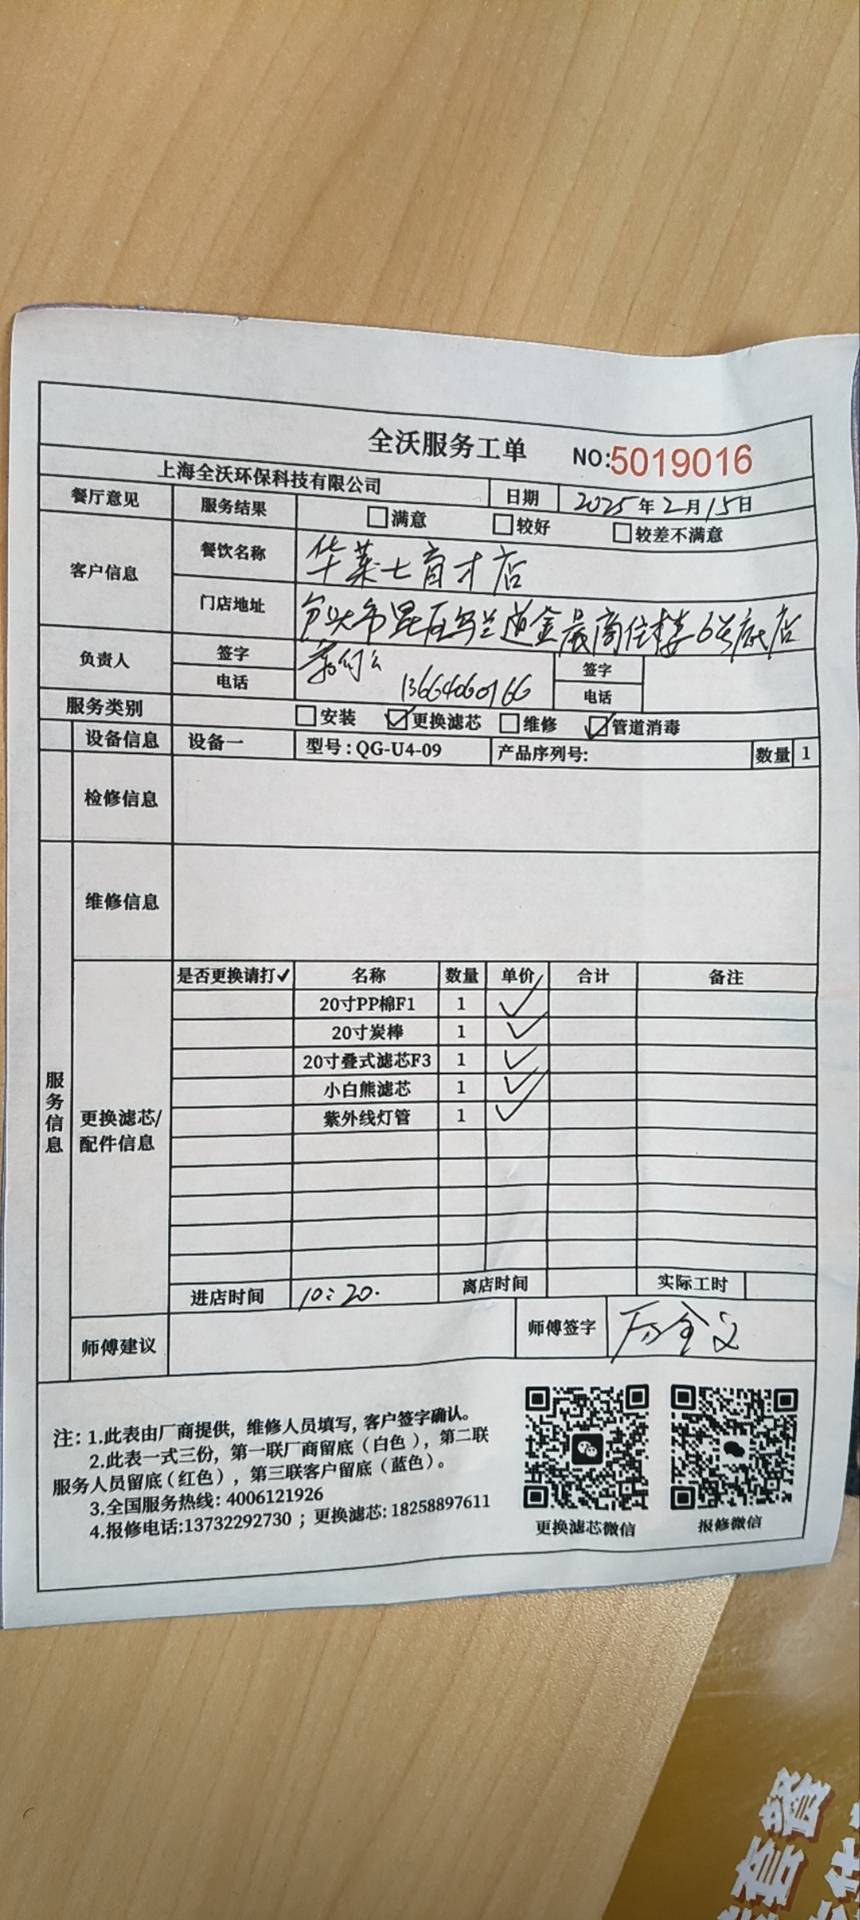 全沃服务工单 NO:5019016
上海全沃环保科技有限公司 日期 2025年2月15日
餐厅意见 服务结果 满意 较好 较差不满意
客户信息 餐饮名称 华莱士育才店
门店地址 包头市昆区乌兰道金晟高住楼6号底店
负责人 签字 签字
电话 13664060166 电话
服务类别 安装 更换滤芯 维修 管道消毒
设备信息 设备一 型号:QG-U4-09 产品序列号: 数量 1
检修信息
维修信息
服务信息
更换滤芯/配件信息
是否更换请打✓ 名称 数量 单价 合计 备注
20寸PP棉F1 1 ✓
20寸炭棒 1 ✓
20寸叠式滤芯F3 1 ✓
小白熊滤芯 1 ✓
紫外线灯管 1 ✓
进店时间 10:20. 离店时间 实际工时
师傅建议 师傅签字
注:1.此表由厂商提供,维修人员填写,客户签字确认。
2.此表一式三份,第一联厂商留底(白色),第二联
服务人员留底(红色),第三联客户留底(蓝色)。
3.全国服务热线:4006121926
4.报修电话:13732292730;更换滤芯:18258897611
更换滤芯微信 报修微信
套餐